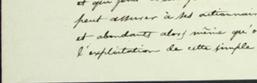 et que
peut assurer à ses actionnair
et abondants alors même que
l'exploitation de cette simple